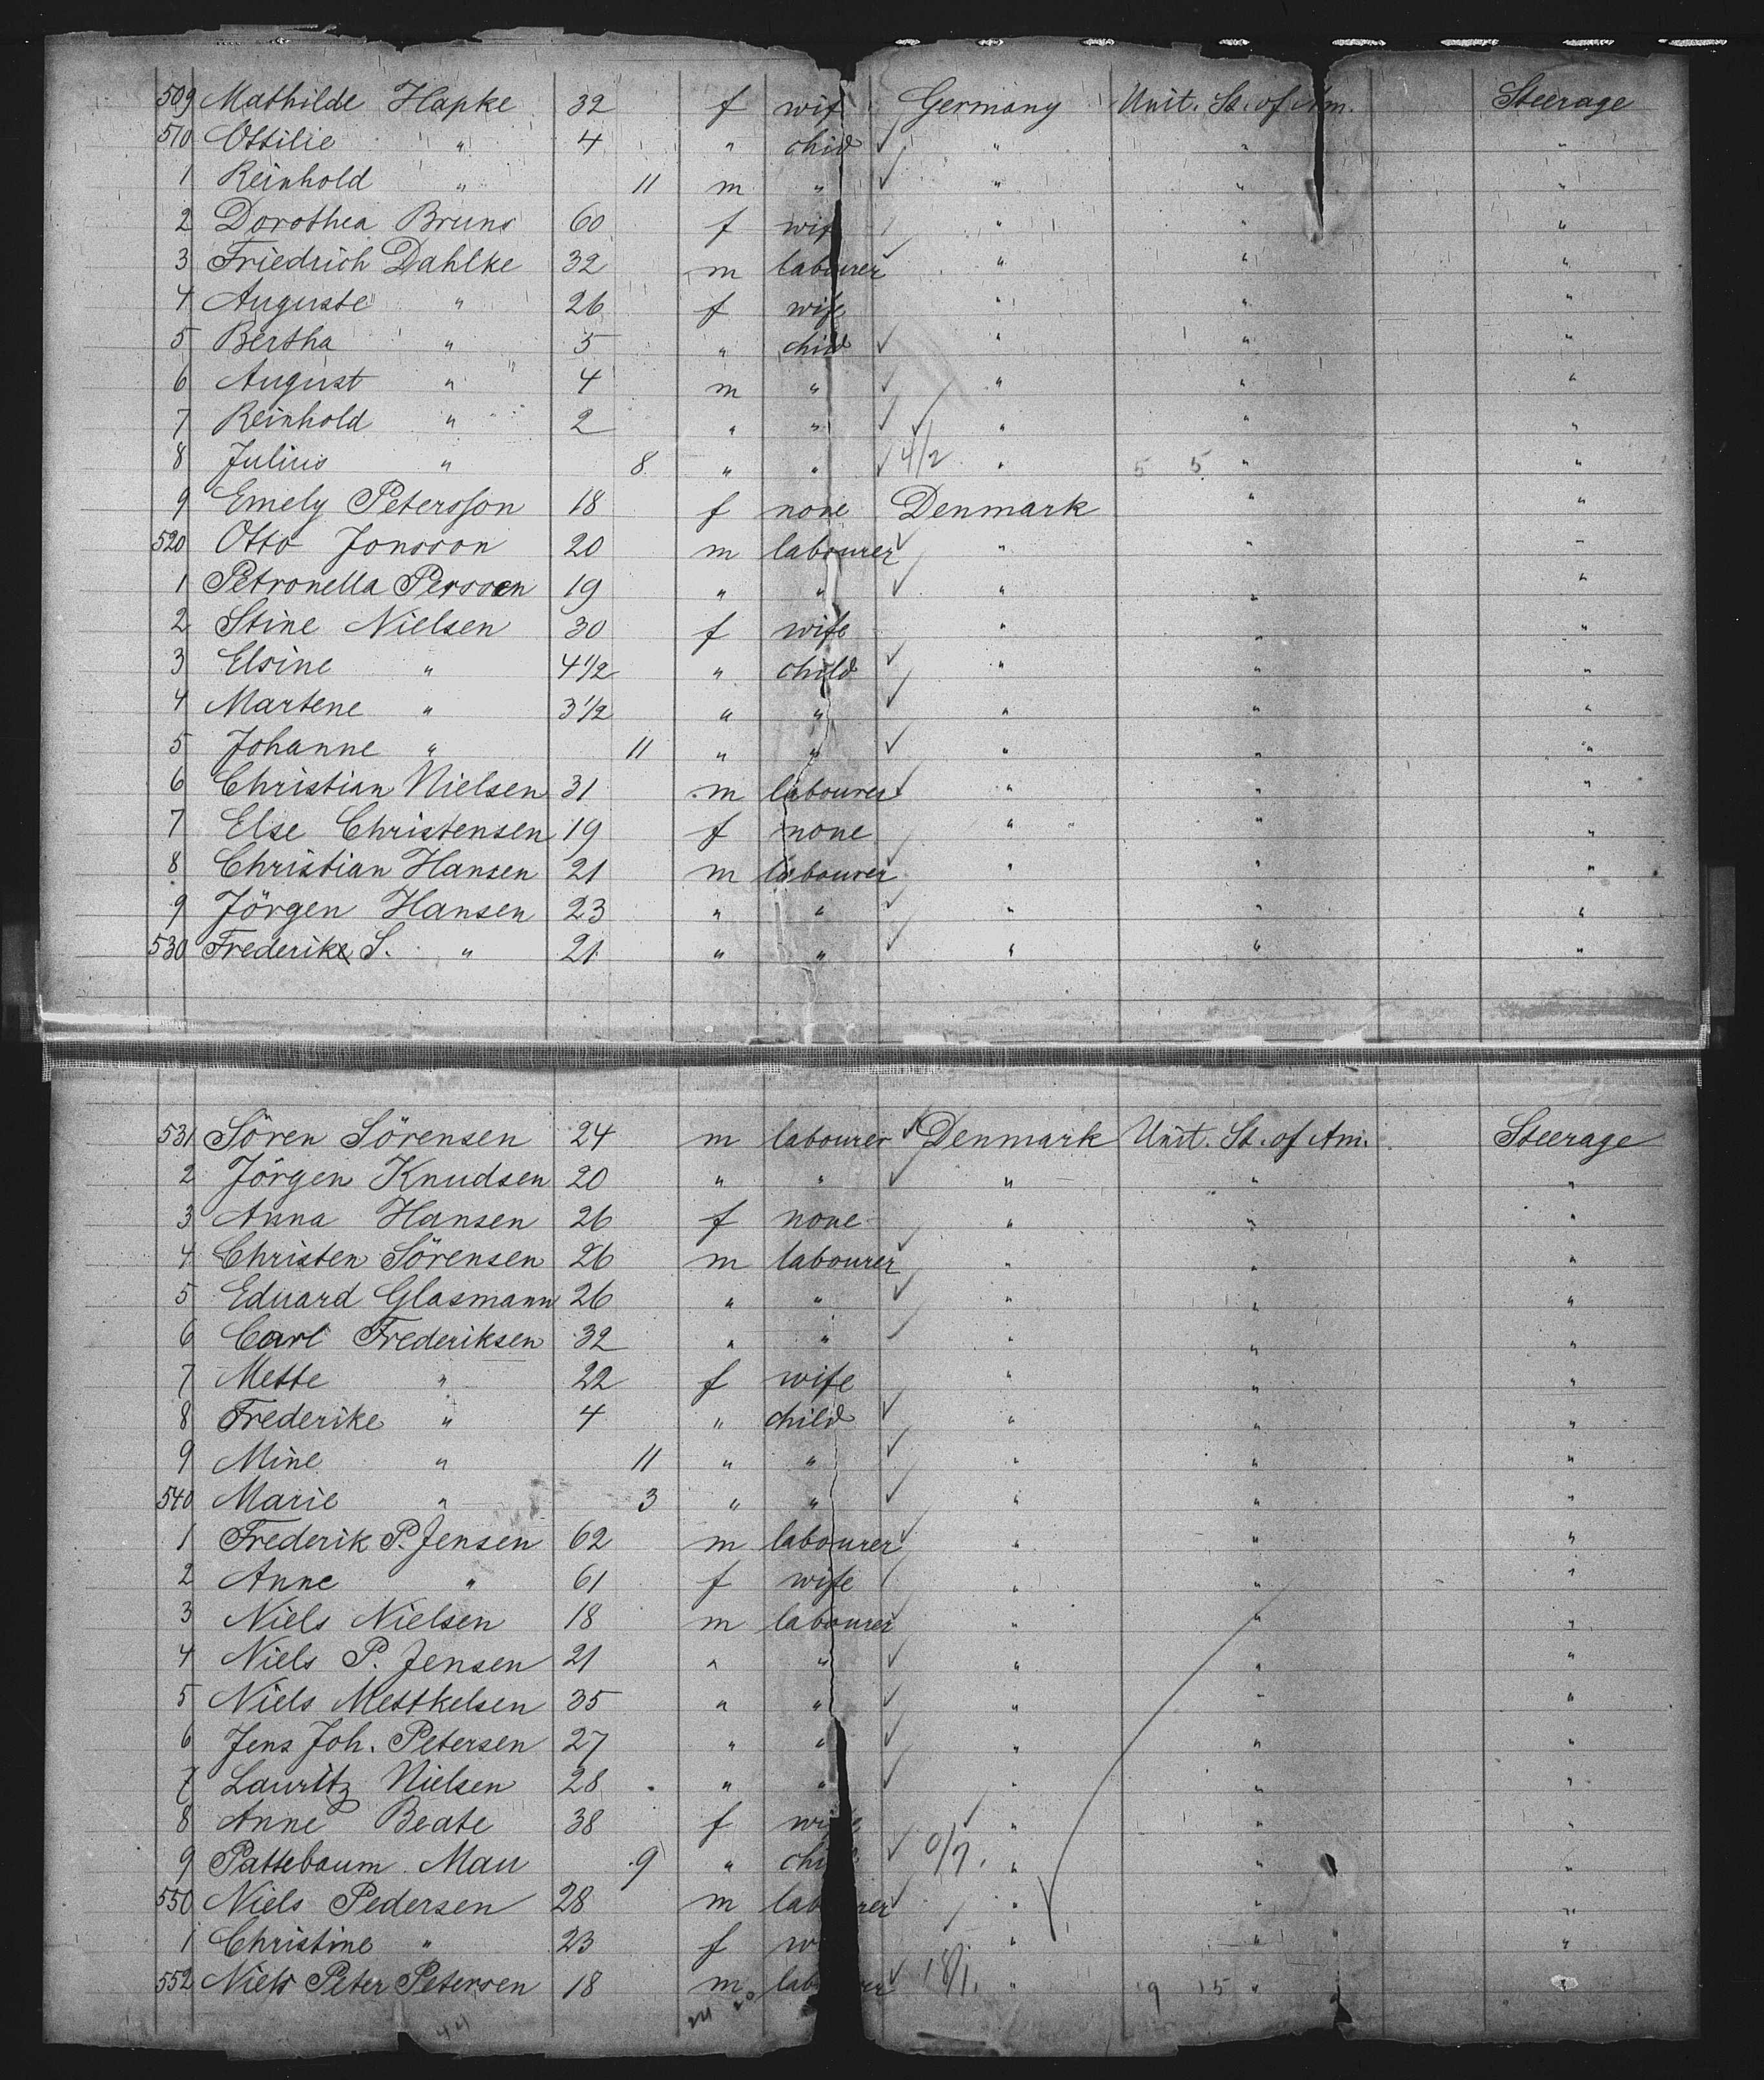 509 Mathilde Hapke 32 f wife Germany Unit. St. of Am. Steerage
510 Ottilie " 4 " child " " "
1 Reinhold " 11 m " " " "
2 Dorothea Bruns 60 f wife " " "
3 Friedrich Dahlke 32 m labourer " " "
4 Auguste " 26 f wife " " "
5 Bertha " 5 " child " " "
6 August " 4 m " " " "
7 Reinhold " 2 " " " " "
8 Julius " 8 " " 4/2 " 5 5 " "
9 Emely Petersson 18 f none Denmark " "
520 Otto Jonsson 20 m labourer " " "
1 Petronella Persson 19 " " " " "
2 Stine Nielsen 30 f wife " " "
3 Elsine " 4 1/2 " child " " "
4 Martene " 3 1/2 " " " " "
5 Johanne " 11 " " " " "
6 Christian Nielsen 31 m labourer " " "
7 Else Christensen 19 f none " " "
8 Christian Hansen 21 m labourer " " "
9 Jörgen Hansen 23 " " " " "
530 Frederik S. " 21 " " " " "
531 Sören Sörensen 24 m labourer Denmark Unit. St. of Am. Steerage
2 Jörgen Knudsen 20 " " " " "
3 Anna Hansen 26 f none " " "
4 Christen Sörensen 26 m labourer " " "
5 Eduard Glasmann 26 " " " " "
6 Carl Frederiksen 32 " " " " "
7 Mette " 22 f wife " " "
8 Frederike " 4 " child " " "
9 Mine " 11 " " " " "
540 Marie " 3 " " " " "
1 Frederik P. Jensen 62 m labourer " " "
2 Anne " 61 f wife " " "
3 Niels Nielsen 18 m labourer " " "
4 Niels P. Jensen 21 " " " " "
5 Niels Mettkelsen 35 " " " " "
6 Jens Joh. Petersen 27 " " " " "
7 Lauritz Nielsen 28 " " " " "
8 Anne Beate 38 f wife " " "
9 Pattebaum Mau 9 " child 0/7. " " "
550 Niels Pedersen 28 m labourer " " "
1 Christine " 23 f w " " "
552 Niels Peter Petersen 18 m labourer 18/1. " 9 15 " "
44